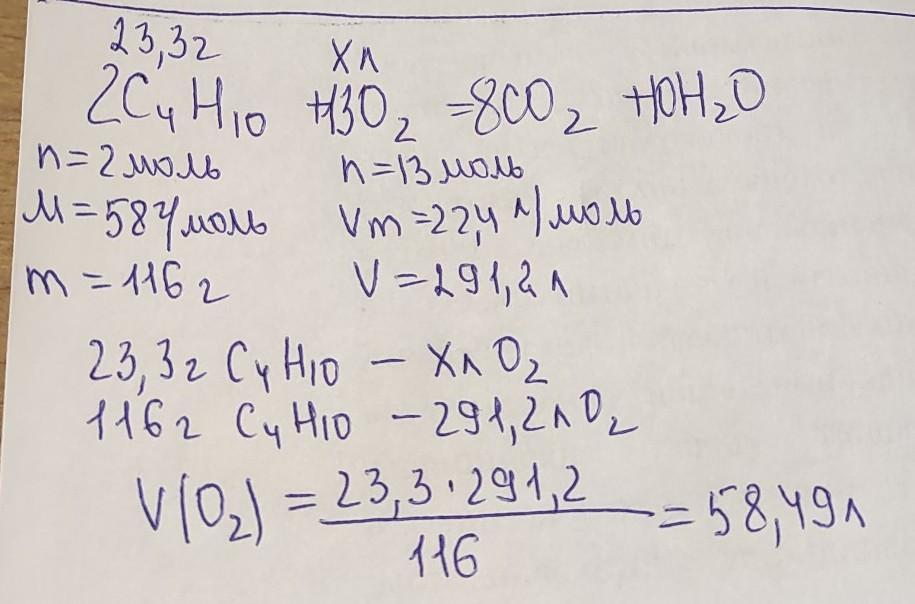 23,3г хл
2C₄H₁₀ +13O₂ =8CO₂ +10H₂O
n=2моль n=13моль
M=58г/моль Vm=22,4 л/моль
m=116г V=291,2л
23,3г C₄H₁₀ – хл O₂
116г C₄H₁₀ – 291,2л O₂
V(O₂) = 23,3·291,2 / 116 = 58,49л